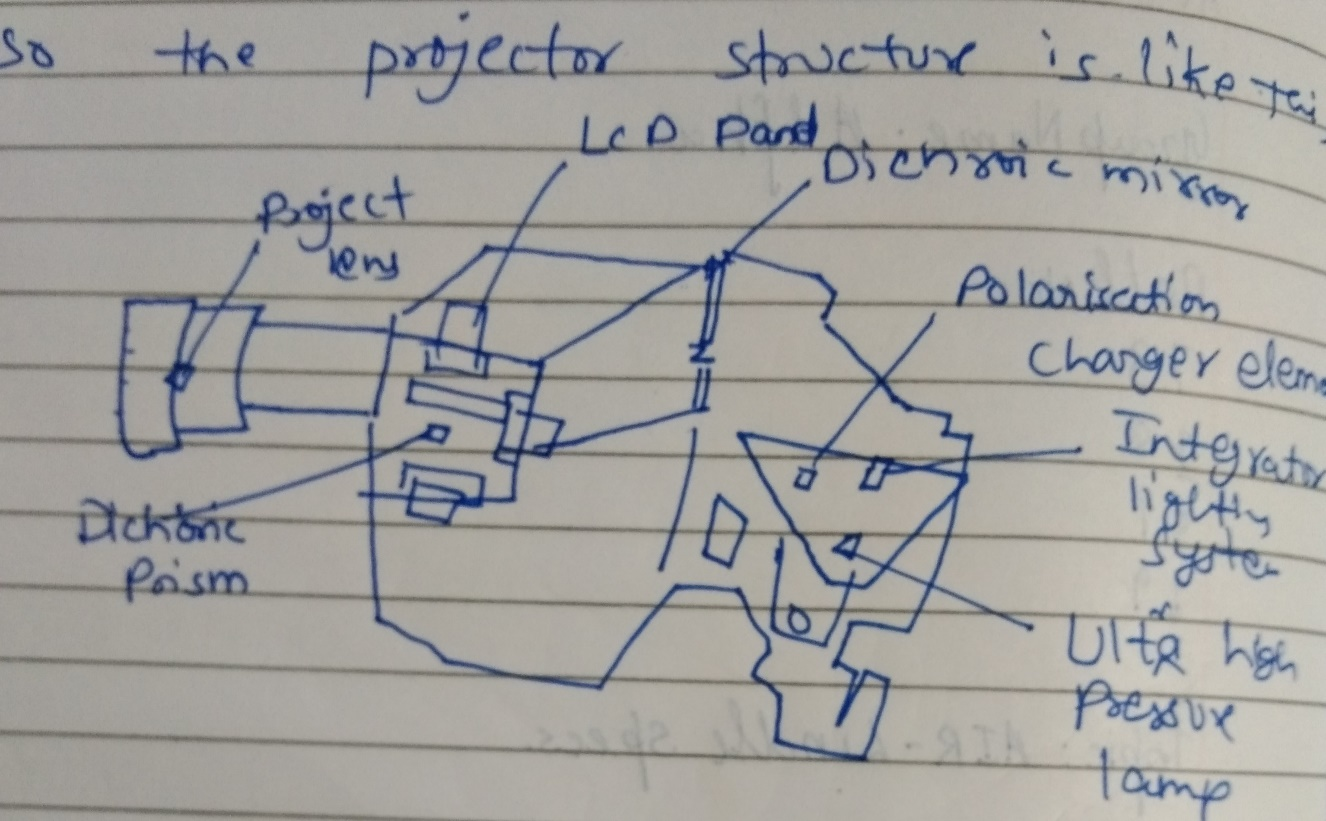 so the projector structure is like
LCD Panel
Dichroic mirror
Project
lens
Polarisation
Charger elem
Integrator
lighting
System
Dichroic
Prism
Ultra high
Pressure
lamp